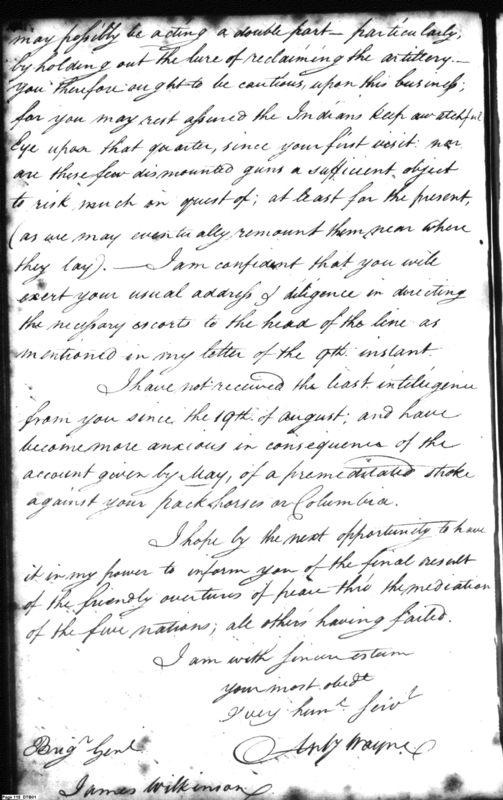 may possibly be acting a double part — particularly,
by holding out the lure of reclaiming the artillery. —
you therefore ought to be cautious, upon this business;
for you may rest assured the Indians keep a watchful
Eye upon that quarter, since your first visit: nor
are these few dismounted guns a sufficient object
to risk much in quest of; at least for the present,
(as we may eventually remount them near where
they lay). — I am confident that you will
exert your usual address & diligence in directing
the necessary escorts to the head of the line as
mentioned in my letter of the 9th. instant
I have not received the least intelligence
from you since the 19th. of august; and have
become more anxious in consequence of the
account given by May, of a premeditated stroke
against your pack horses or Columbia.
I hope by the next opportunity to have
it in my power to inform you of the final result
of the friendly overtures of peace thro' the mediation
of the five nations; all others having failed.
I am with sincere esteem
your most obedt
& very huml. Servt
Brigr Genl Anty Wayne
James Wilkinson
Page 119 DTB01